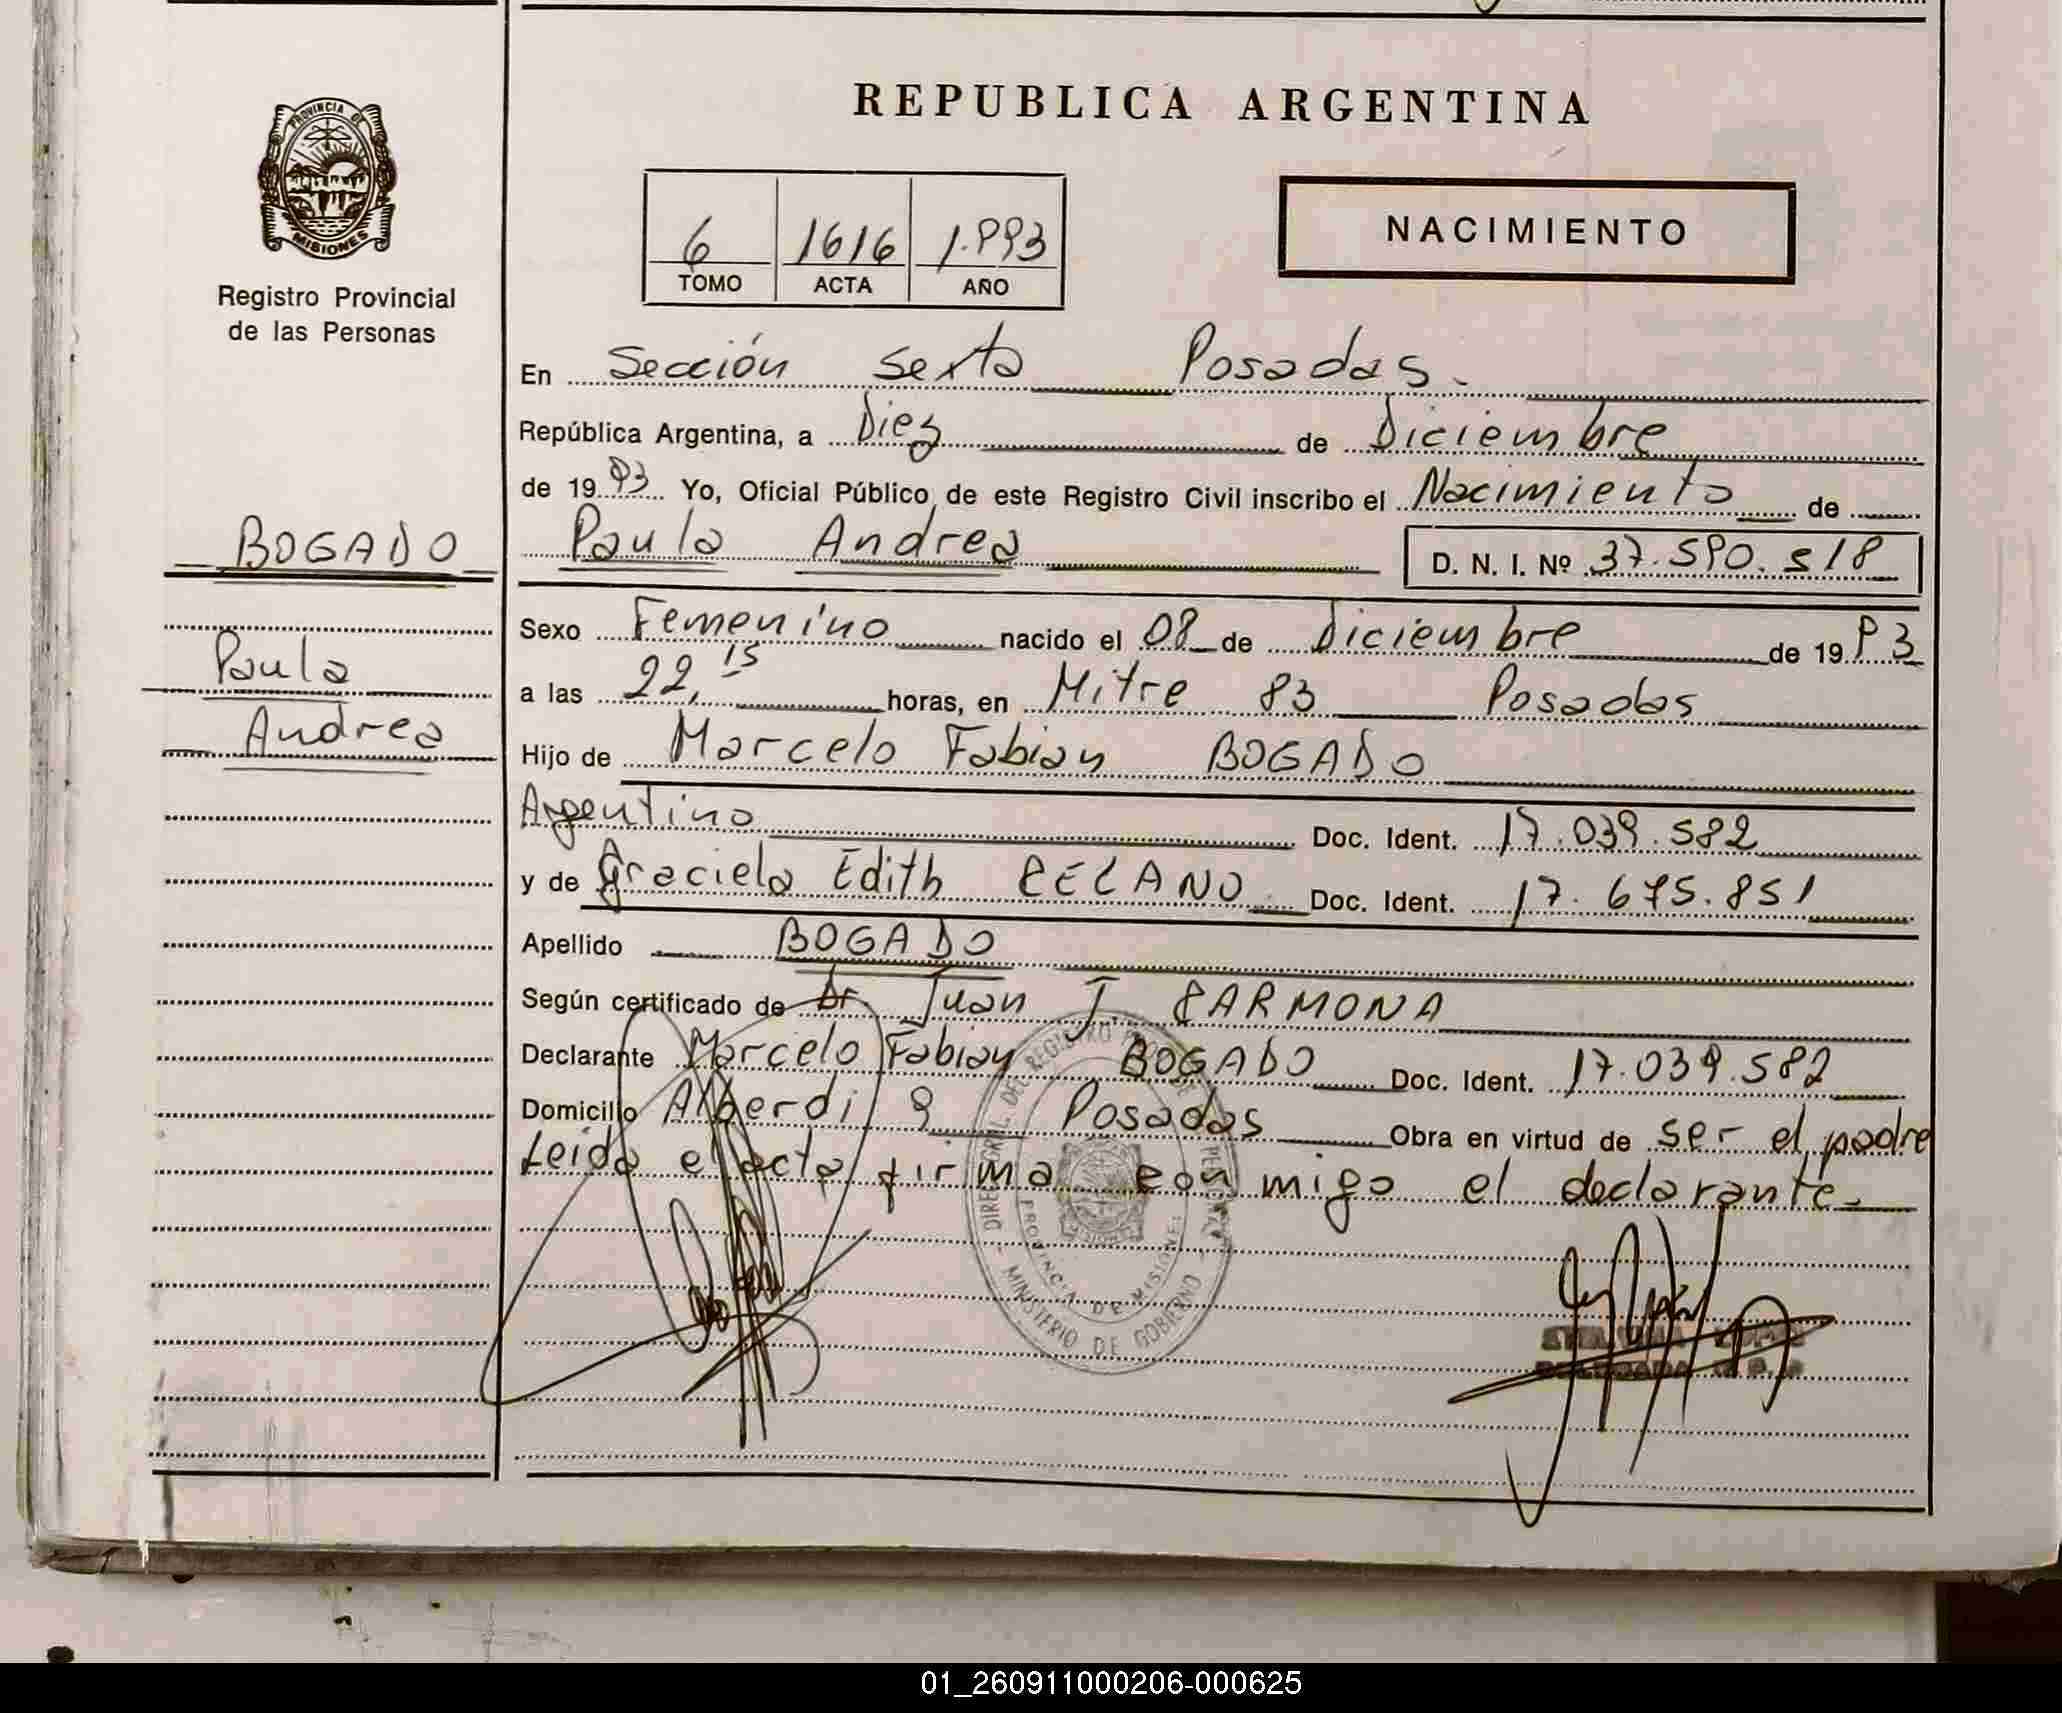 REPUBLICA ARGENTINA
PROVINCIA DE
MISIONES
Registro Provincial
de las Personas
6 1616 1.993
TOMO ACTA AÑO
NACIMIENTO
En Sección Sexta Posadas.
República Argentina, a Diez de Diciembre
de 1993 Yo, Oficial Público de este Registro Civil inscribo el Nacimiento de
BOGADO
Paula Andrea D. N. I. Nº 37.590.518
Sexo Femenino nacido el 08 de Diciembre de 1993
Paula
a las 22,15 horas, en Mitre 83 Posadas
Andrea
Hijo de Marcelo Fabian BOGADO
Argentino Doc. Ident. 17.039.582
y de Graciela Edith CELANO Doc. Ident. 17.675.851
Apellido BOGADO
Según certificado de Dr Juan J. CARMONA
Declarante Marcelo Fabian BOGADO Doc. Ident. 17.039.582
Domicilio Alberdi 9 Posadas Obra en virtud de ser el padre
Leida el acta firma conmigo el declarante.
DIREC. GRAL. DEL REGISTRO
PROVINCIA DE MISIONES
MINISTERIO DE GOBIERNO
01_260911000206-000625